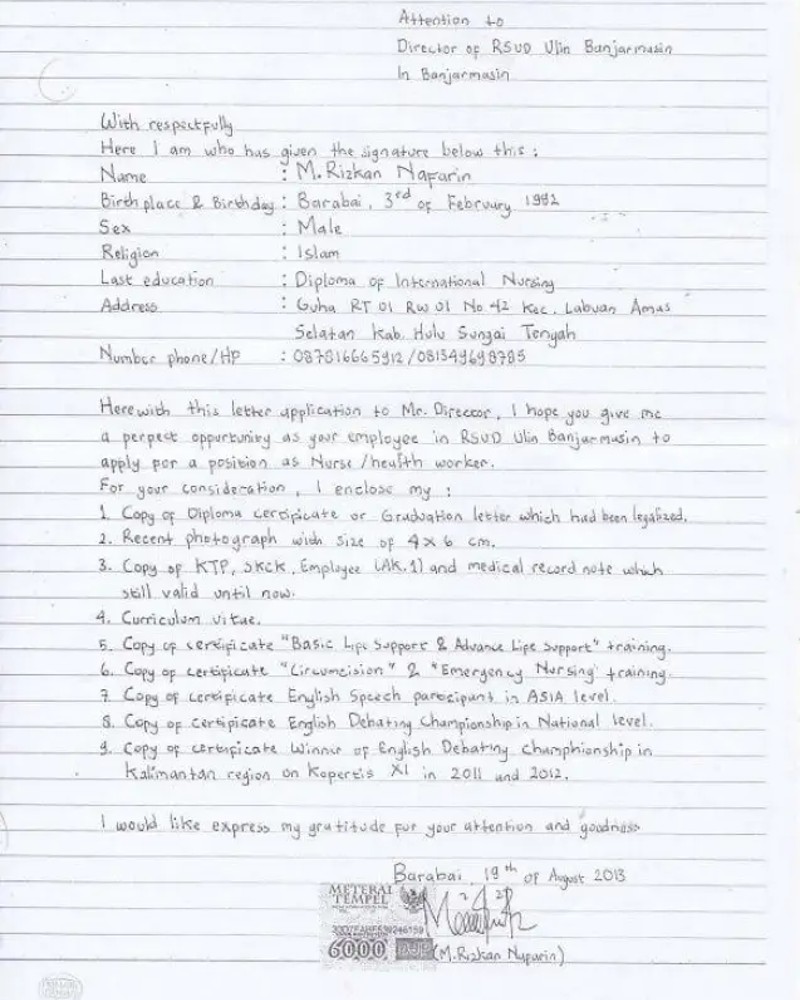 Attention to
Director of RSUD Ulin Banjarmasin
In Banjarmasin
With respectfully
Here I am who has given the signature below this :
Name : M. Rizkan Nafarin
Birth place & Birthday : Barabai, 3rd of February 1992
Sex : Male
Religion : Islam
Last education : Diploma of International Nursing
Address : Guha RT 01 RW 01 No 42 Kec. Labuan Amas
Selatan Kab. Hulu Sungai Tengah
Number phone/HP : 087816665912/081349698785
Herewith this letter application to Mr. Director, I hope you give me
a perpect oppurtunity as your employee in RSUD Ulin Banjarmasin to
apply for a position as Nurse/health worker.
For your consideration, I enclose my :
1. Copy of Diploma certificate or Graduation letter which had been legalized.
2. Recent photograph with size of 4x6 cm.
3. Copy of KTP, SKCK, Employee (AK.1) and medical record note which
still valid until now.
4. Curriculum vitae.
5. Copy of certificate "Basic Life Support & Advance Life Support" training.
6. Copy of certificate "Circumcision" & "Emergency Nursing" training.
7. Copy of certificate English Speech participant in ASIA level.
8. Copy of certificate English Debating Championship in National level.
9. Copy of certificate Winner of English Debating champhionship in
Kalimantan region on Kopertis XI in 2011 and 2012.
I would like express my gratitude for your attention and goodness
Barabai, 19th of August 2013
METERAI
TEMPEL
6000 DJP
(M. Rizkan Nafarin)